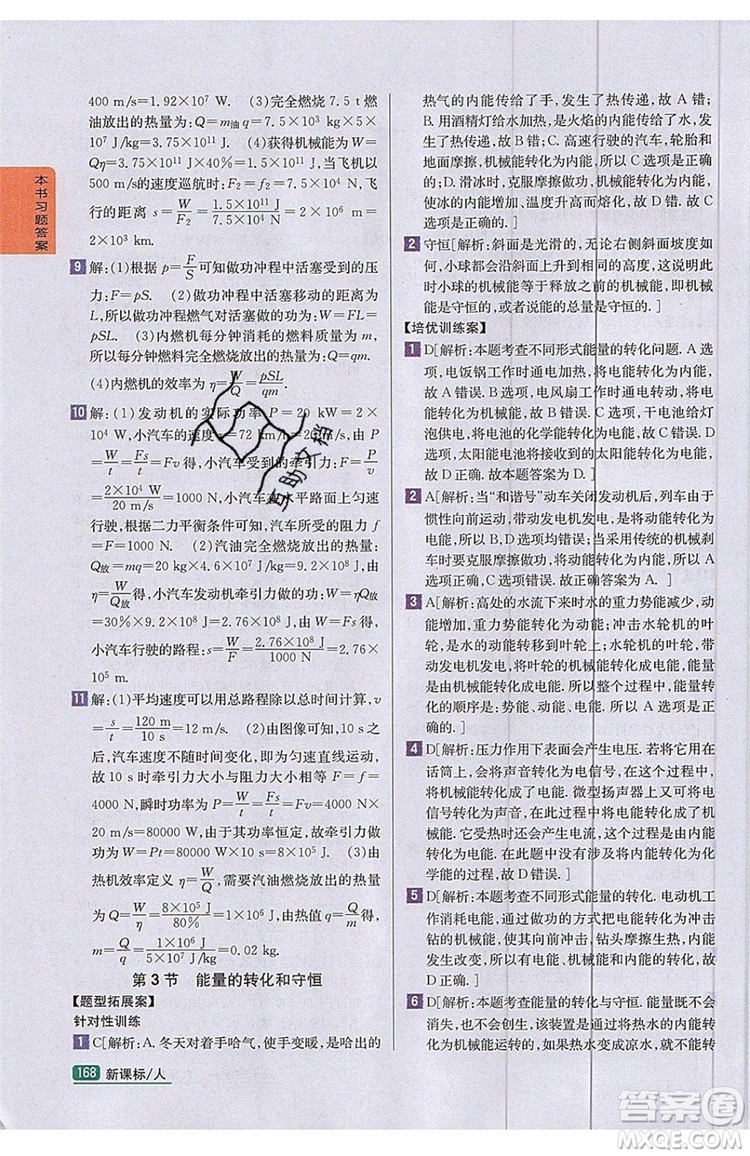 本书习题答案
400 m/s=1.92×10⁷ W. (3)完全燃烧 7.5 t 燃
油放出的热量为:Q=m油q=7.5×10³ kg×5×
10⁷ J/kg=3.75×10¹¹ J (4)获得机械能为 W=
Qη=3.75×10¹¹ J×40%=1.5×10¹¹ J,当飞机以
的速度巡航时:F₂=4.8×10⁴ N×
行的距离 s=W/F₂=1.5×10¹¹ J/7.5×10⁴ N=2×10⁶ m=
2×10³ km.
9 解:(1)根据 p=F/S可知做功冲程中活塞受到的压
力:F=pS. (2)做功冲程中活塞移动的距离为
L,所以做功冲程燃气对活塞做的功:W=FL=
pSL. (3)内燃机每分钟消耗的燃料质量为 m,
所以每分钟燃料完全燃烧放出的热量:Q=mq.
(4)内燃机的效率为 η=W/Q=pSL/mq.
10 解:(1)发动机的实际功率 P=20 kW=2×
10⁴ W,小汽车的速度 v=72 km/h=20 m/s,由 P
=W/t=Fs/t=Fv 得,小汽车受到的牵引力:F=P/v
=2×10⁴ W/20 m/s=1000 N,小汽车在水平路面上匀速
行驶,根据二力平衡条件可知,汽车所受阻力:f=
F=1000 N. (2)汽油完全燃烧放出的热量:
Q放=mq=20 kg×4.6×10⁷ J/kg=9.2×10⁸ J,由
η=W/Q放得,小汽车发动机牵引力做的功:W=ηQ放=
30%×9.2×10⁸ J=2.76×10⁸ J,由 W=Fs 得,
小汽车行驶的路程:s=W/F=2.76×10⁸ J/1000 N=2.76×
10⁵ m.
11 解:(1)平均速度可以用总路程除以总时间计算,v
=s/t=120 m/10 s=12 m/s. (2)由图像可知,10 s
后,汽车速度不随时间变化,即为匀速直线运动,故
10 s 时牵引力大小与阻力大小相等,即 F=f=
4000 N,瞬时功率为 P=W/t=Fs/t=Fv=4000×20
W=80000 W,由于功率恒定,故牵引力做功为:
W=Pt=80000 W×10 s=8×10⁵ J. (3)根据
热机效率定义 η=W/Q,需要汽油燃烧放出的热量
为 Q=W/η=8×10⁵ J/80%=1×10⁶ J,由 Q=mq 得,
m=Q/q=1×10⁶ J/5×10⁷ J/kg=0.02 kg.
第 3 节 能量的转化和守恒
【题型拓展案】
针对性训练
1 C[解析:A. 冬天对着手哈气,使手变暖,是哈出的
168 新课标/人
热气的内能传给了手,发生了热传递,故 A 错;
B. 用酒精灯给水加热,是火焰的内能传给了水,发
生了热传递,故 B 错;C. 高速行驶的汽车,轮胎和
地面摩擦,机械能转化为内能,所以 C 选项正确;
D. 滑冰时,克服摩擦做功,机械能转化为内能,
使冰的内能增加,温度升高而熔化,故 D 错,所以
C 选项是正确的.]
2 守恒[解析:斜面是光滑的,无论右侧斜面坡度如
何,小球都会达到与释放之前相同的高度,说明此
时小球的机械能等于释放之前的机械能,也就是
机械能是守恒的,或者说能的总量是守恒的.]
【培优训练案】
1 D[解析:本题考查不同形式能量的转化问题. A 选
项,电饭锅工作时通电加热,将电能转化为内能,
故 A 错误. B 选项,电风扇工作时电动机转动,将
电能转化为机械能,故 B 错误. C 选项,干电池给灯
泡供电,将电池的化学能转化为电能,故 C 错误.
D 选项,太阳能电池将接收到的太阳能转化为电
能,故 D 正确. 故本题答案为 D.]
2 A[解析:当“和谐号”动车关闭发动机后,列车由于
惯性向前运动,带动发电机发电,将动能转化为电
能,B、D 选项均错误;当采用传统的机械刹
车时要克服摩擦做功,将动能转化为内能,故 A 选
项正确,C 选项错误. 故正确答案为 A.]
3 A[解析:高处的水流下来时水的重力势能减少,动
动能增加,重力势能转化为动能;冲击水轮机的叶
轮,是水的动能转移到叶轮上;水轮机的叶轮转动
带动发电机发电,将叶轮的机械能转化为电能,所
以这是机械能转化成电能. 所以,发电过程中能量
转化的顺序是:势能、动能、动能、电能.]
4 D[解析:压力作用下表面会产生电压. 若将它用在
话筒上,会将声音转化为电信号,在能量转化上是
将机械能转化为电能了. 微型扬声器上又可以将电
信号转化为声音,在能量转化上是电能转化成了机
械能. 它受热时又可以产生电流,这说明是由内能
转化为电能. 在此题中没有出现涉及将内能转化为
机械能的情况,故选 D.]
5 D[解析:本题考查不同形式能量的转化. 电动机工
作消耗电能,通过做功的方式把电能转化为冲击
钻的机械能,同时,钻头摩擦生热,使钻头摩擦产生
内能,故选 D.]
6 D[解析:本题考查能量的转化与守恒. 能量不会
消失,也不会创生,该装置是通过将热水的内能转
化为机械能运转的,如果热水变成凉水,就无内能
答案圈
MXQE.COM